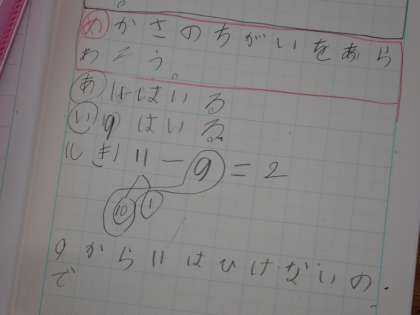 。
め かさのちがいをあら
わそう。
あ 11はいる。
い 9はいる。
(しき) 11-9=2
10 1
9から11はひけないの
で